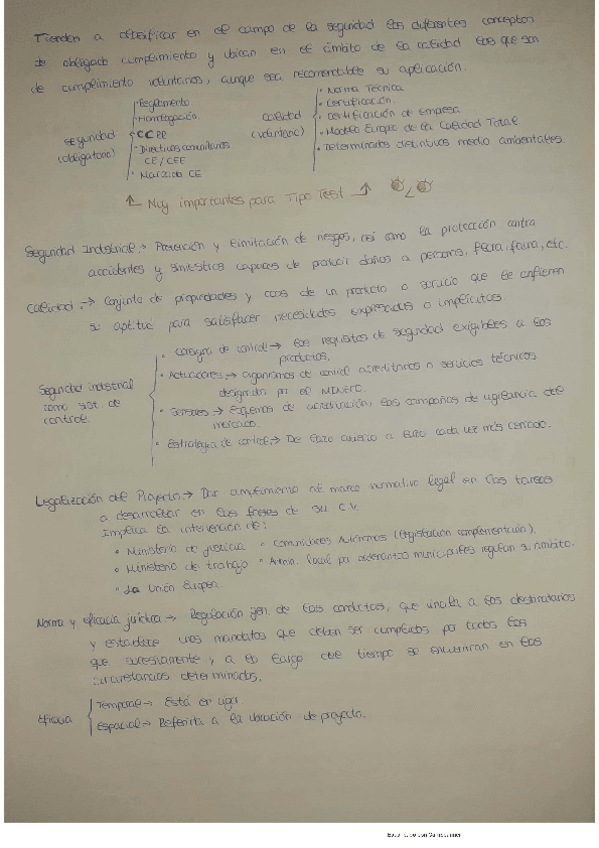 Tienden a clasificar en el campo de la seguridad los diferentes conceptos
de obligado cumplimiento y ubican en el ámbito de la calidad los que son
de cumplimiento voluntarios, aunque sea recomendable su aplicación.
Seguridad (obligatorio)
• Reglamento
• Homologación.
• CCRR
• Directivas comunitarias CE/CEE
• Marcado CE
Calidad (voluntario)
• Norma Técnica
• Certificación.
• Certificación de empresa
• Modelo Europeo de la Calidad Total
• Determinados distintivos medio ambientales.
Muy importantes para Tipo Test
Seguridad Industrial → Prevención y limitación de riesgos, así como la protección contra
accidentes y siniestros capaces de producir daños a personas, flora, fauna, etc.
Calidad → Conjunto de propiedades y de un producto o servicio que le confieren
su aptitud para satisfacer necesidades expresadas o implícitas.
Seguridad industrial como sist de control.
• Consigna de control → Los requisitos de seguridad exigibles a los
productos.
• Actuadores → organismos de control acreditados o servicios técnicos
designado por el MINERCO.
• Sensores → Esquemas de acreditación, las campañas de vigilancia del
mercado.
• Estrategia de control → De lazo abierto a lazo cada vez más cerrado.
Legalización del Proyecto → Dar cumplimiento al marco normativo legal en las tareas
a desarrollar en las fases de su C.V.
Implica la intervención de:
• Ministerio de Justicia • Comunidades Autónomas (legislación complementaria).
• Ministerio de trabajo • Admin. local por ordenanzas municipales regulan su ámbito.
• La Unión Europea
Norma y eficacia jurídica → Regulación gen. de las conductas, que vincula a los destinatarios
y establece unos mandatos que deben ser cumplidos por todos los
que sucesivamente y a lo largo del tiempo se encuentran en las
circunstancias determinadas.
Eficacia
Temporal → Está en vigor.
Espacial → Referida a la ubicación de proyecto.